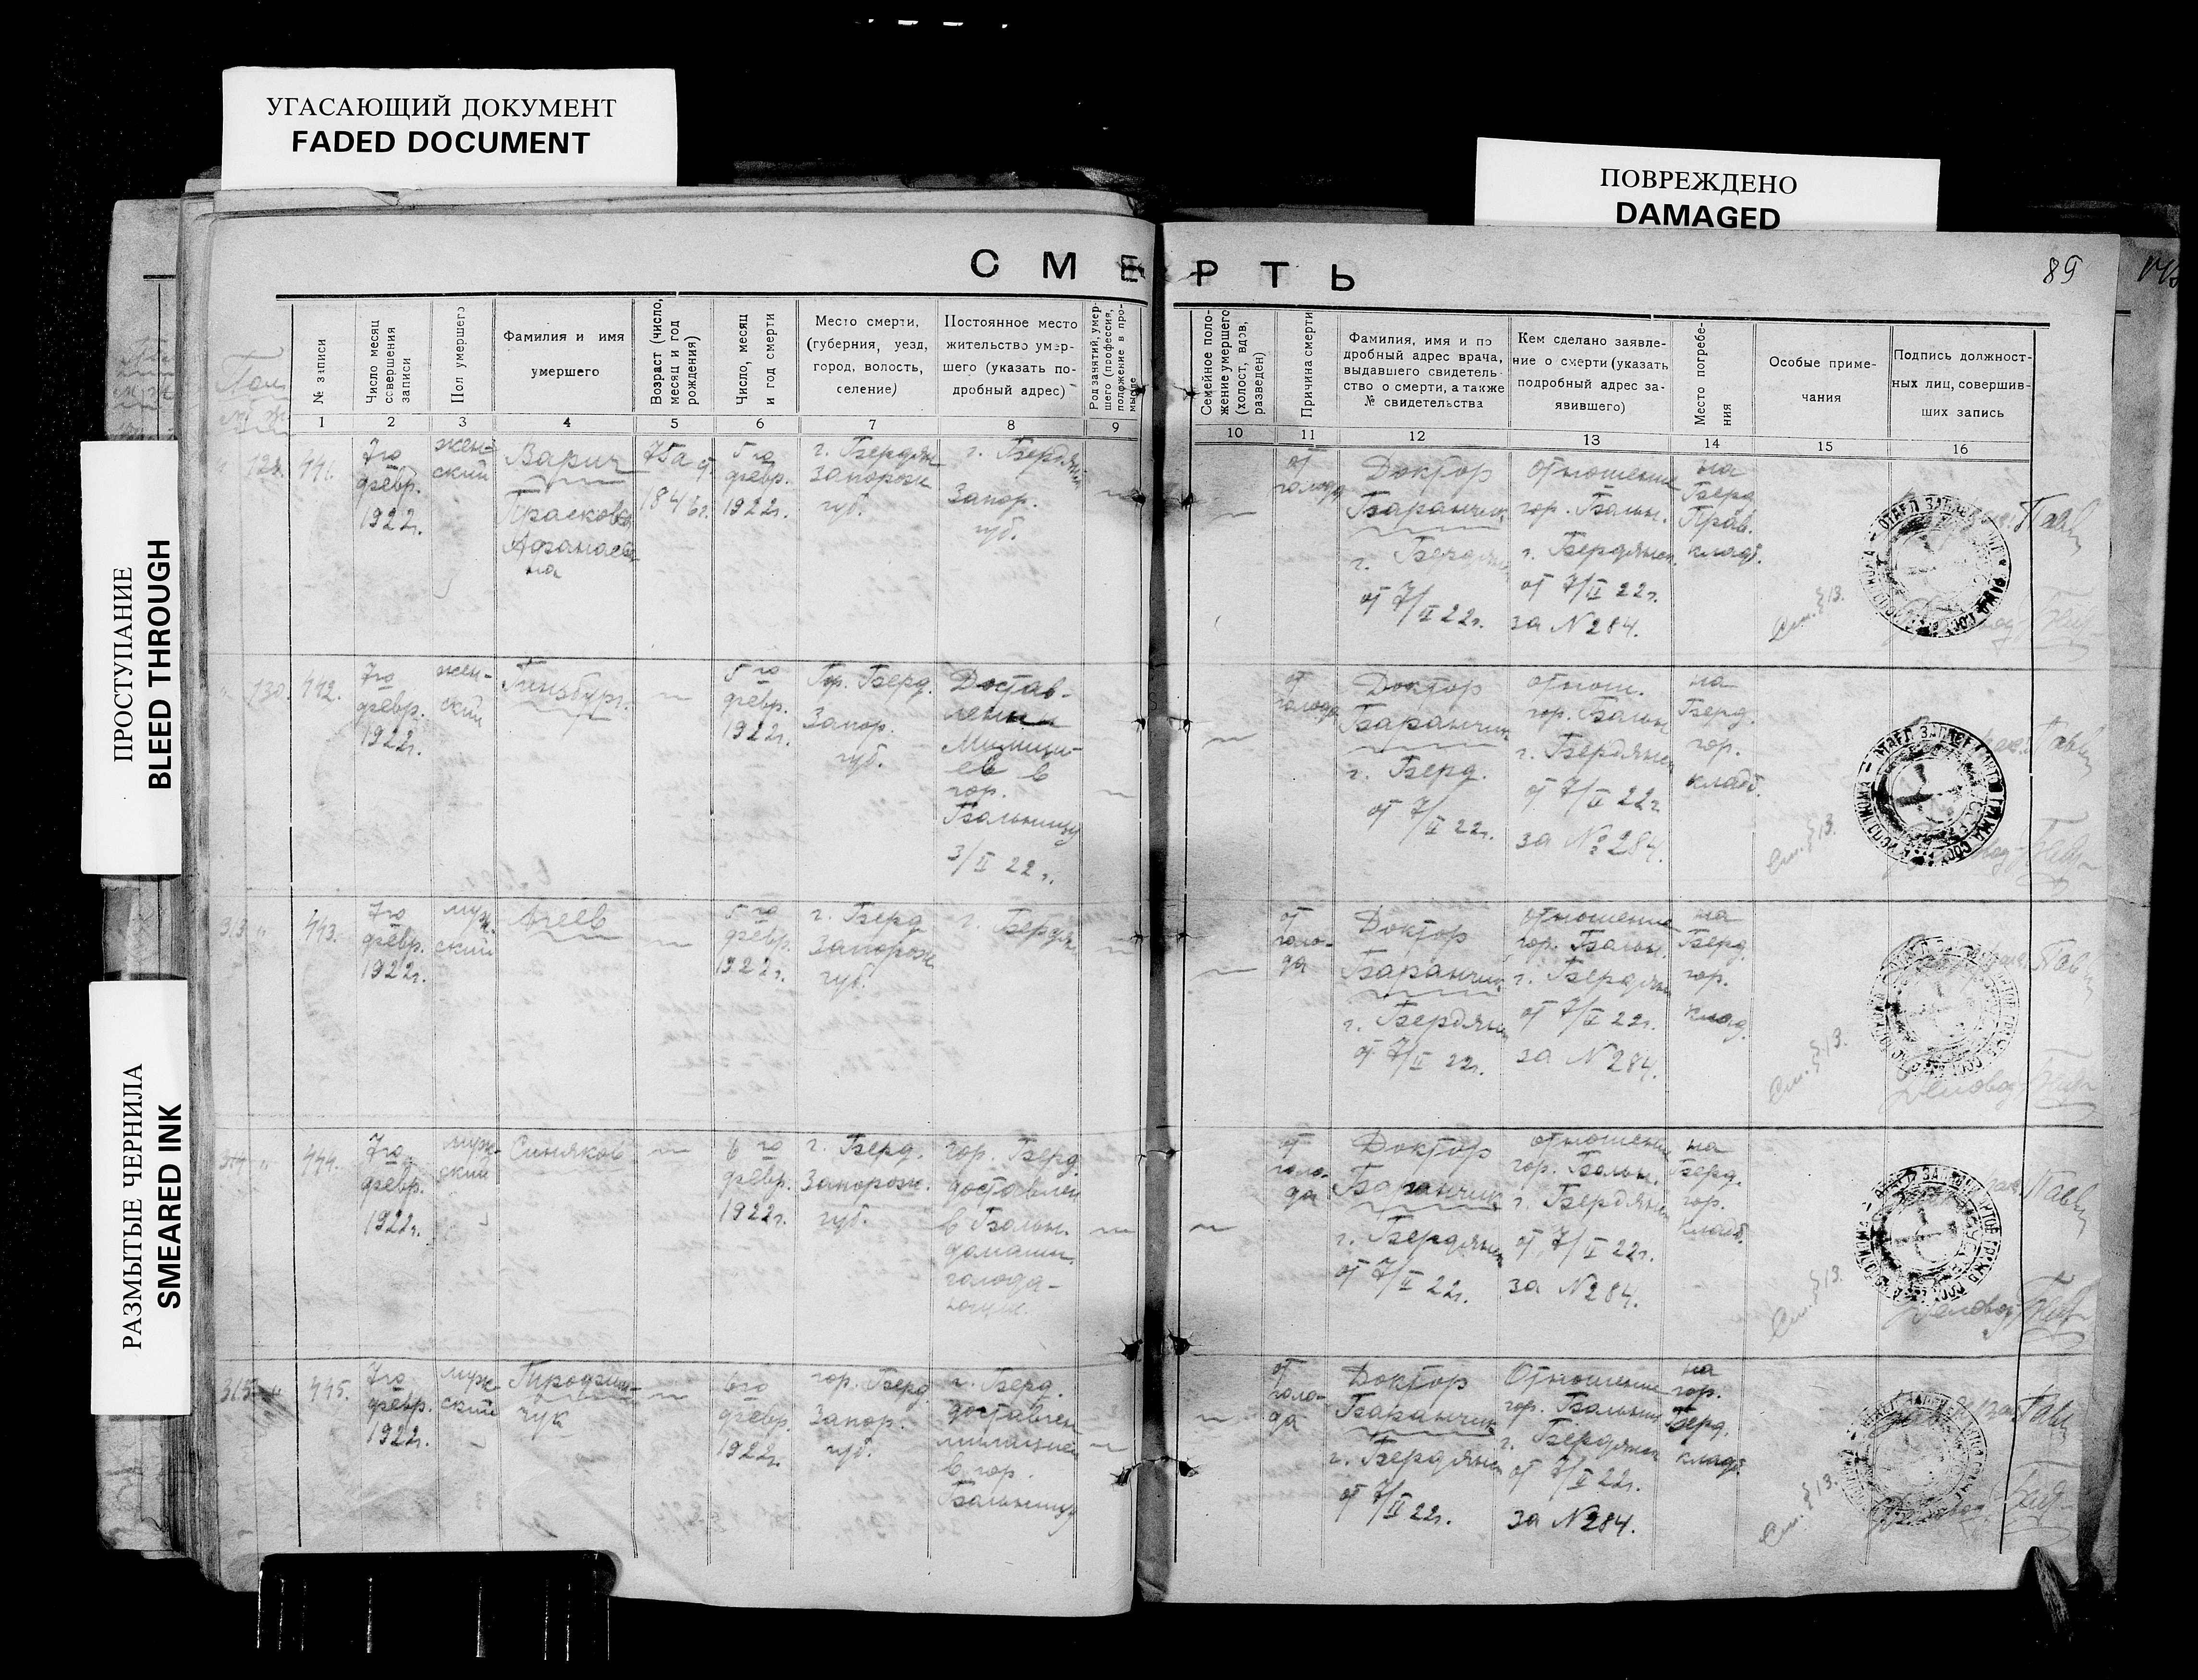 УГАСАЮЩИЙ ДОКУМЕНТ
FADED DOCUMENT
ПОВРЕЖДЕНО
DAMAGED
ПРОСТУПАНИЕ
BLEED THROUGH
РАЗМЫТЫЕ ЧЕРНИЛА
SMEARED INK
СМЕРТЬ
89
№ записи
Число месяц
совершения
записи
Пол умершего
Фамилия и имя
умершего
Возраст (число,
месяц и год
рождения)
Число, месяц
и год смерти
Место смерти,
(губерния, уезд,
город, волость,
селение)
Постоянное место
жительство умер-
шего (указать по-
дробный адрес)
Род занятий, умер-
шего (профессия,
положение в про-
мысле
Семейное поло-
жение умершего
(холост, вдов,
разведен)
Причина смерти
Фамилия, имя и по
дробный адрес врача,
выдавшего свидетель-
ство о смерти, а также
№ свидетельства
Кем сделано заявле-
ние о смерти (указать
подробный адрес за-
явившего)
Место погребе-
ния
Особые приме-
чания
Подпись должност-
ных лиц, совершив-
ших запись
1 2 3 4 5 6 7 8 9 10 11 12 13 14 15 16
441.
7го
февр.
1922г.
жен-
ский
Варич
Прасковья
5го
февр.
1922г.
г. Бердян
запорож
губ.
г. Бердян
Запор.
губ.
от
голода
Доктор
Баранчик
г. Бердян
от 7/II 22г.
отношение
гор. Больн.
г. Бердянск
от 7/II 22г.
за N 284.
на
Берд
Прав.
кладб.
См. § 13.
130.
442.
7го
февр.
1922г.
жен-
ский
Гинзбург.
5го
февр.
1922г.
Гор. Берд.
Запор.
губ.
Достав-
лена
Милици-
ей в
гор.
Больницу
3/II 22г.
от
голода
Доктор
Баранчик
г. Берд.
от 7/II 22г.
отнош.
гор. Больн
г. Бердянск
от 7/II 22г
за № 284.
на
Берд.
гор.
кладб.
См. § 13.
313 "
443.
7го
февр.
1922г.
муж-
ский
Агеев
5го
февр.
1922г.
г. Берд
Запорож
губ.
г. Бердян.
от
голо-
да
Доктор
Баранчик
г. Бердянск
от 7/II 22г.
отношение
гор. Больн.
г. Бердян
от 7/II 22г.
за N 284.
на
Берд.
гор.
клад.
См. § 13.
314 "
444.
7го
февр.
1922г.
муж-
ский
Синяков
6го
февр.
1922г.
г. Берд.
Запорож.
губ.
гор. Берд.
доставлен
в Больн.
голода-
ющим.
от
голо-
да
Доктор
Баранчик
г. Бердянск
от 7/II 22г.
отношение
гор. Больн.
г. Бердянск
от 7/II 22г.
за N 284.
на
Берд.
гор.
кладб.
См. § 13.
Деловод
315 "
445.
7го
февр.
1922г.
муж-
ский
6го
февр.
1922г.
гор. Берд
Запор.
губ.
г. Берд.
доставлен
милицией
в гор.
Больницу
от
голо-
да
Доктор
Баранчик
г. Бердянск
от 7/II 22г.
Отношение
гор. Больниц
г. Бердянск
от 7/II 22г.
за N 284.
на
гор.
Берд.
кладб.
См. § 13.